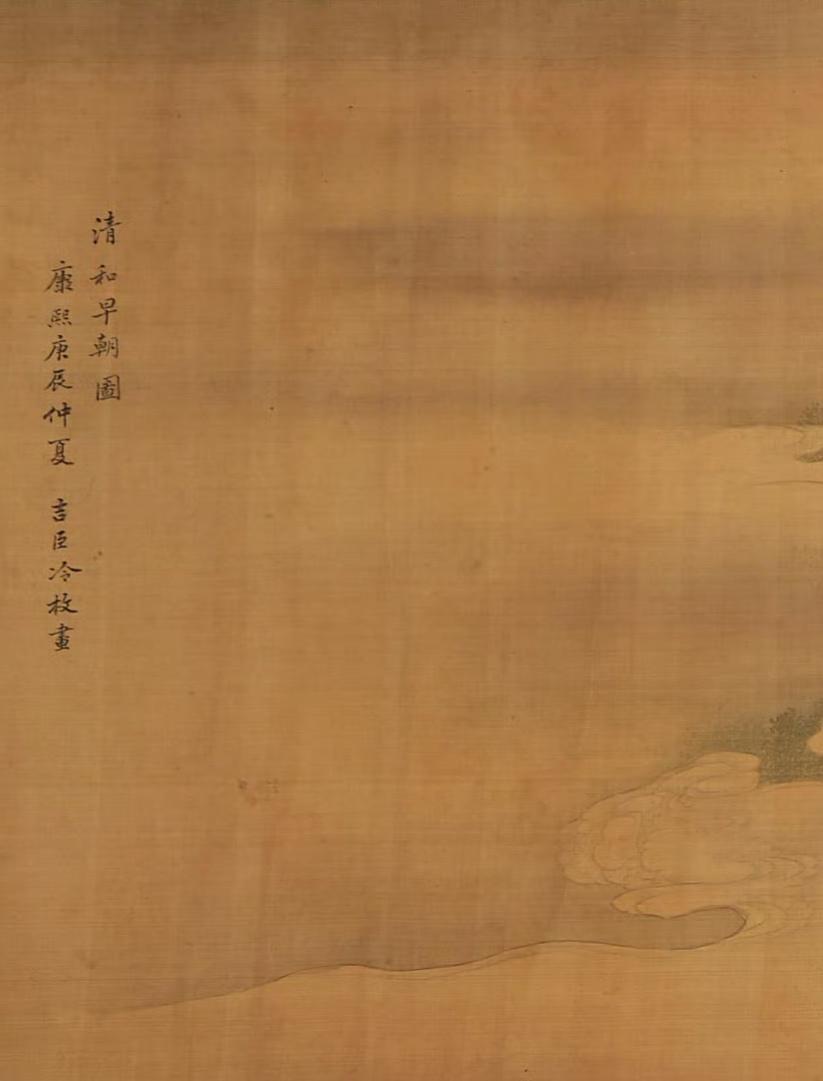 清和早朝圖
康熙庚辰仲夏 吉臣冷枚畫